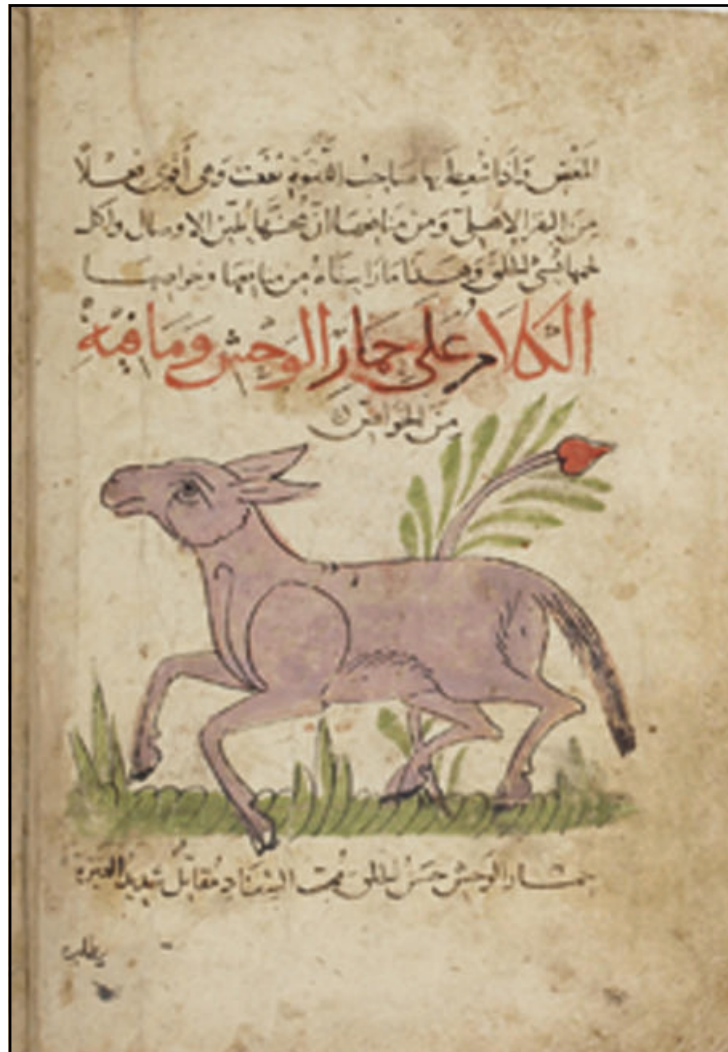 المغص واذا سعط بها صاحب اللقوة نفعت وهي أقوى فعلا
من البقر الاهلي ومن منافعها ان مخها الاوصال واكل
لحمها الخلق وهذا ما رايناه من منافعها وخواصها
الكلام على حمار الوحش وما فيه
من الخواص
حمار الوحش حسن الخلق السفاد مقاتل شديد الغيرة
يطلب